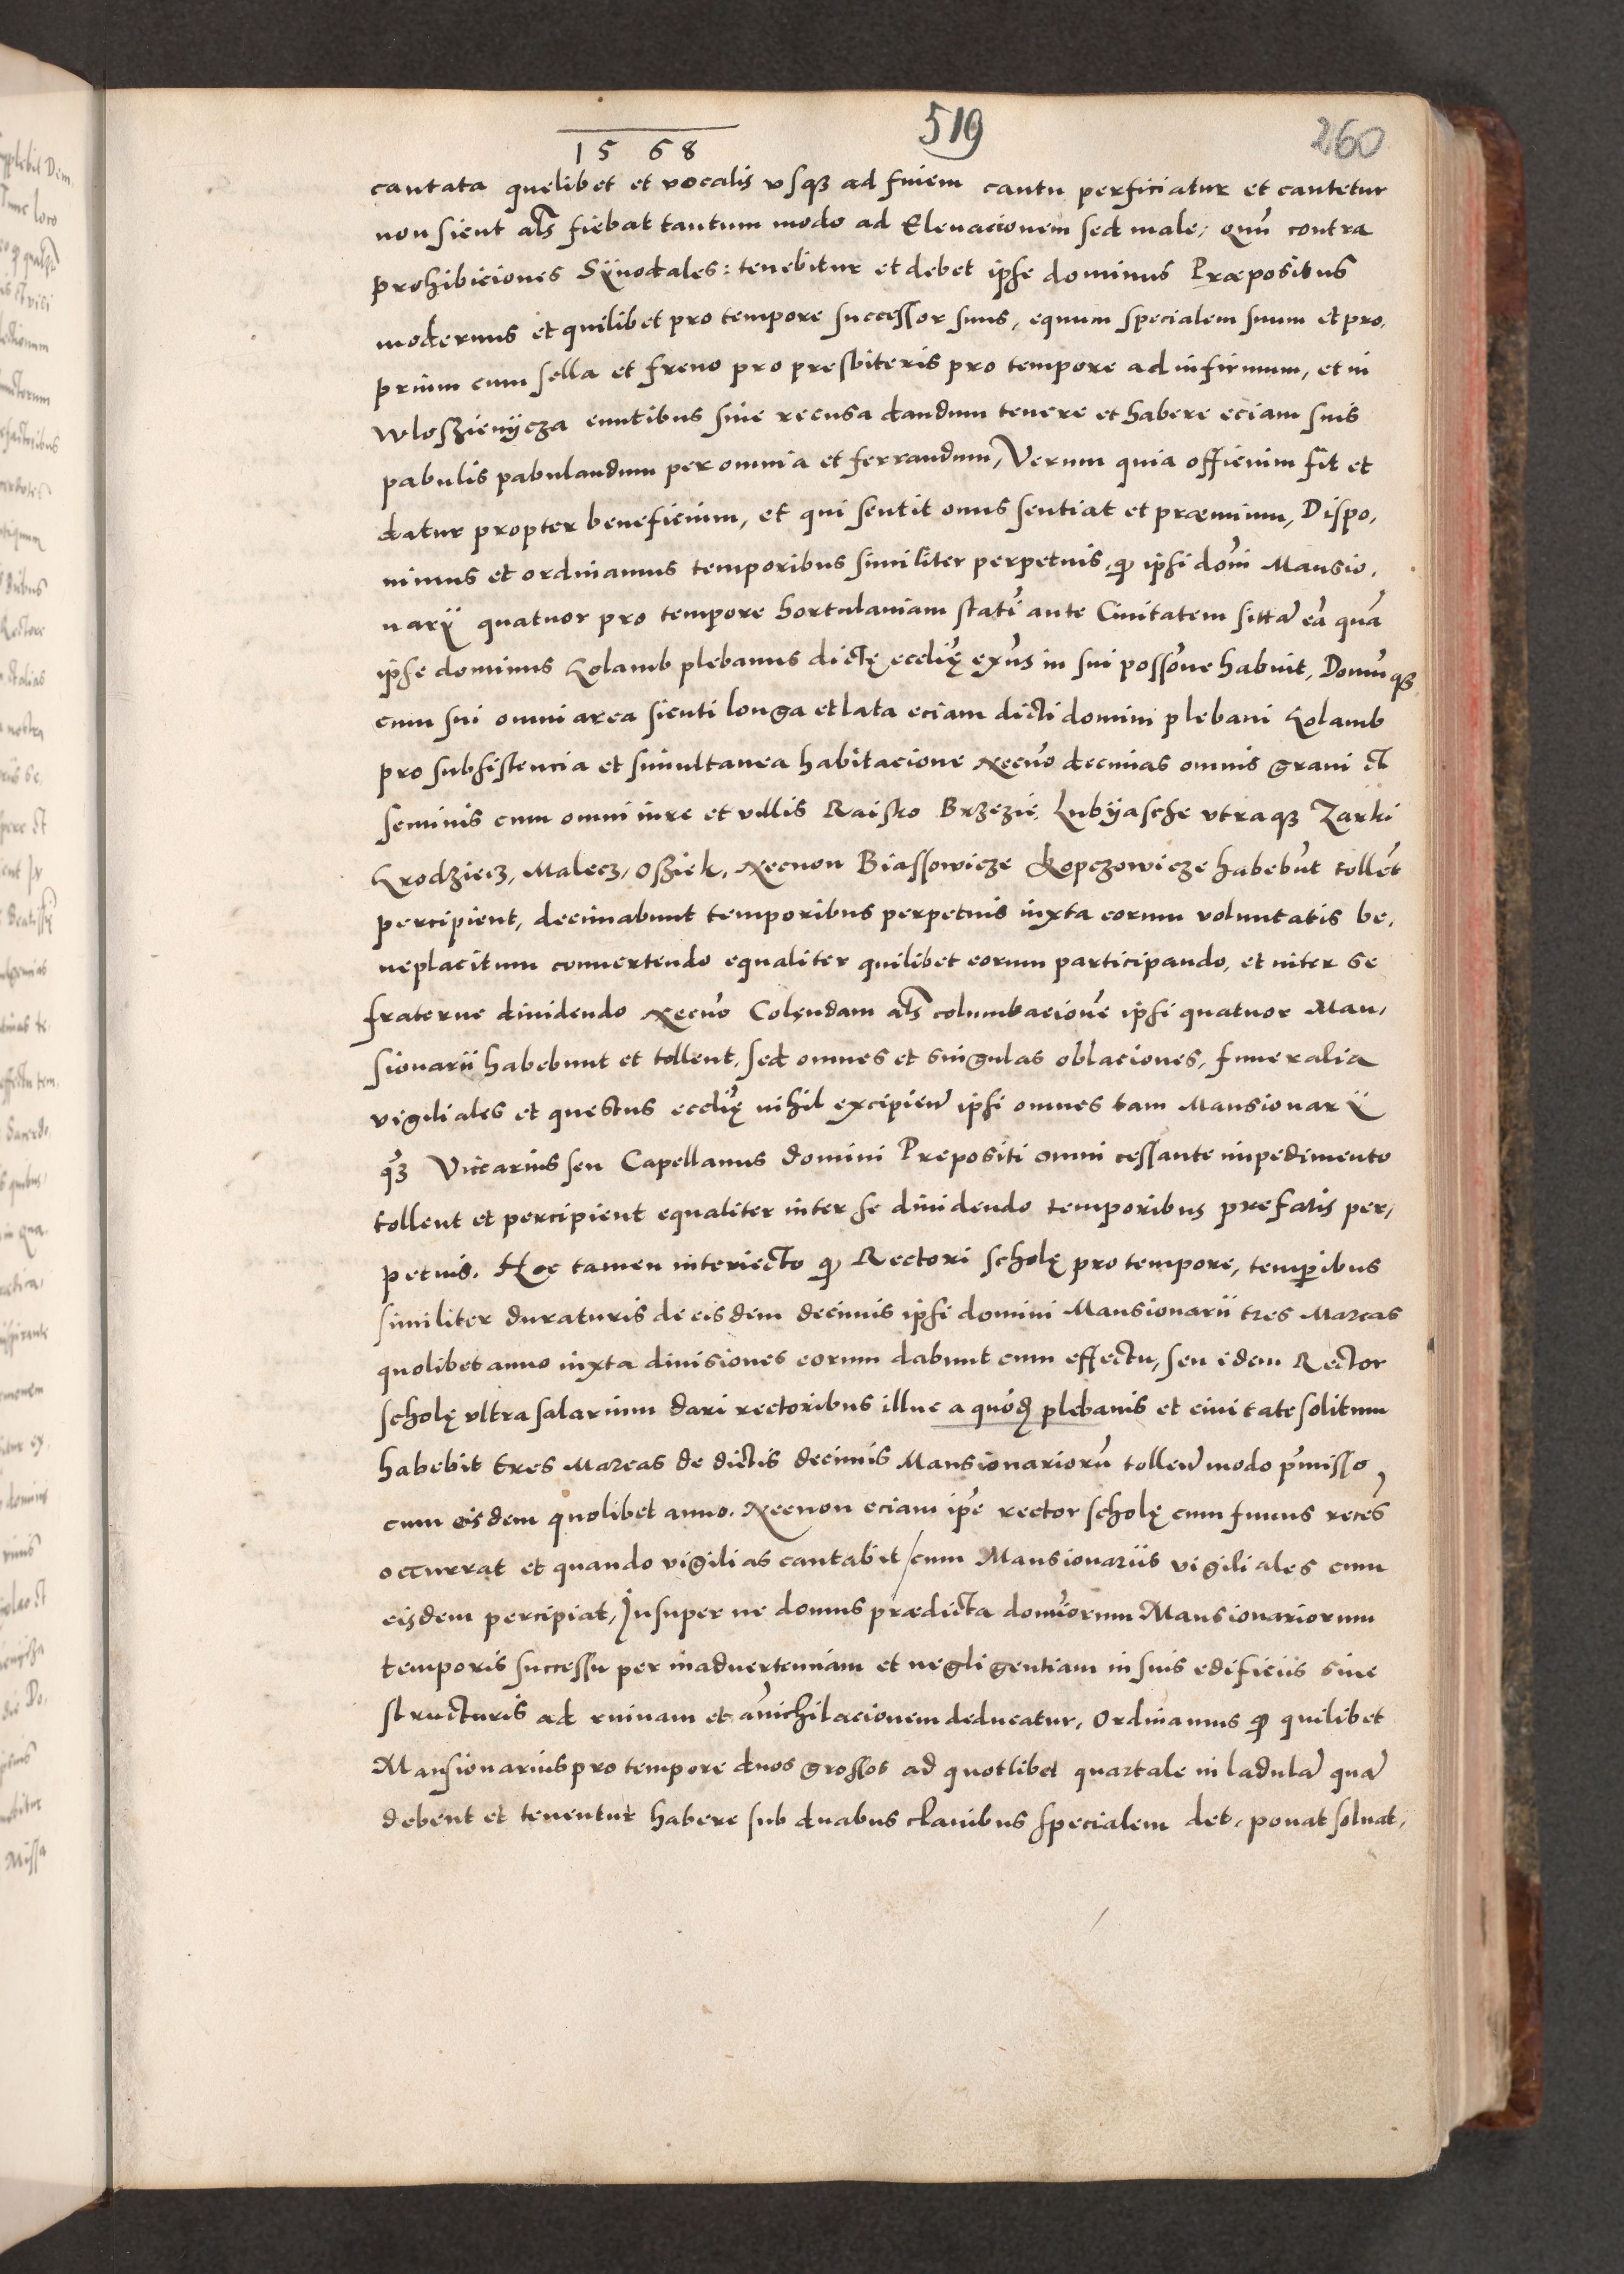 519
260
1568
cantata quelibet et vocalis vsqз ad finem cantu perficiatur et cantetur
non sicut als̃ fiebat tantum modo ad Eleuacionem sed male, quũ contra
prohibiciones Sÿnodales: tenebitur et debet ipse dominus Præpositus
modernus et quilibet pro tempore successor suus, equum specialem suum et pro,
prium cum sella et freno pro presbiteris pro tempore ad infirmum, et in
Wloszienÿcza euntibus siue recusa dandum tenere et habere eciam suis
pabulis pabulandum per omnia et ferrandum, Verum quia officium fit et
datur propter beneficium, et qui sentit onus sentiat et præmium, Dispo,
nimus et ordinamus temporibus similiter perpetuis, ꝙ ipsi dom̃i Mansio,
narÿ quatuor pro tempore hortulaniam statĩ ante Ciuitatem sittã eã quã
ipse dominus Golamb plebanus dictę ecclĩę exñs in sui possõne habuit, Domũqз
cum sui omni area sicuti longa et lata eciam dicti domini plebani Golamb
pro subsistencia et simultanea habitacione Necnõ decimas omnis grani et
seminis cum omni iure et villis Raisko Brzezie, Lubÿasche vtraqз Zarki
Grodziecz, Malecz, Osziek, Necnon Biassowicze Kopczowicze habebũt tollẽt
percipient, decimabunt temporibus perpetuis iuxta eorum voluntatis be,
neplacitum conuertendo equaliter quilibet eorum participando, et inter se
fraterne diuidendo Necnõ Colęndam als̃ columbacionẽ ipsi quatuor Man,
sionarii habebunt et tollent, sed omnes et singulas oblaciones, funeralia
vigiliales et questus ecclĩę nihil excipieñ ipsi omnes tam Mansionarÿ
q̃з Vicarius seu Capellanus domini Prepositi omni cessante impedimento
tollent et percipient equaliter inter se diuidendo temporibus prefatis per,
petuis. Hoc tamen interiecto ꝙ Rectori scholę pro tempore, temp̃ibus
similiter duraturis de eisdem decimis ipsi domini Mansionarii tres Marcas
quolibet anno iuxta diuisiones eorum dabunt cum effectu, seu idem Rector
scholę vltra salarium dari rectoribus illuc a quõd plebanis et ciuitate solitum
habebit tres Marcas de dictis decimis Mansionariorũ tolleñ modo p̃misso
cum eisdem quolibet anno. Necnon eciam ip̃e rector scholę cum funus recẽs
occurrat et quando vigilias cantabit / cum Mansionariis vigiliales cum
eisdem percipiat, Insuper ne domus prædicta domĩorum Mansionariorum
temporis successu per inaduertenciam et negligentiam in suis edificiis siue
structuris ad ruinam et añichilacionem deducatur, Ordinamus ꝙ quilibet
Mansionarius pro tempore duos grossos ad quotlibet quartale in ladulã quã
debent et tenentur habere sub duabus clauibus specialem det, ponat soluat,